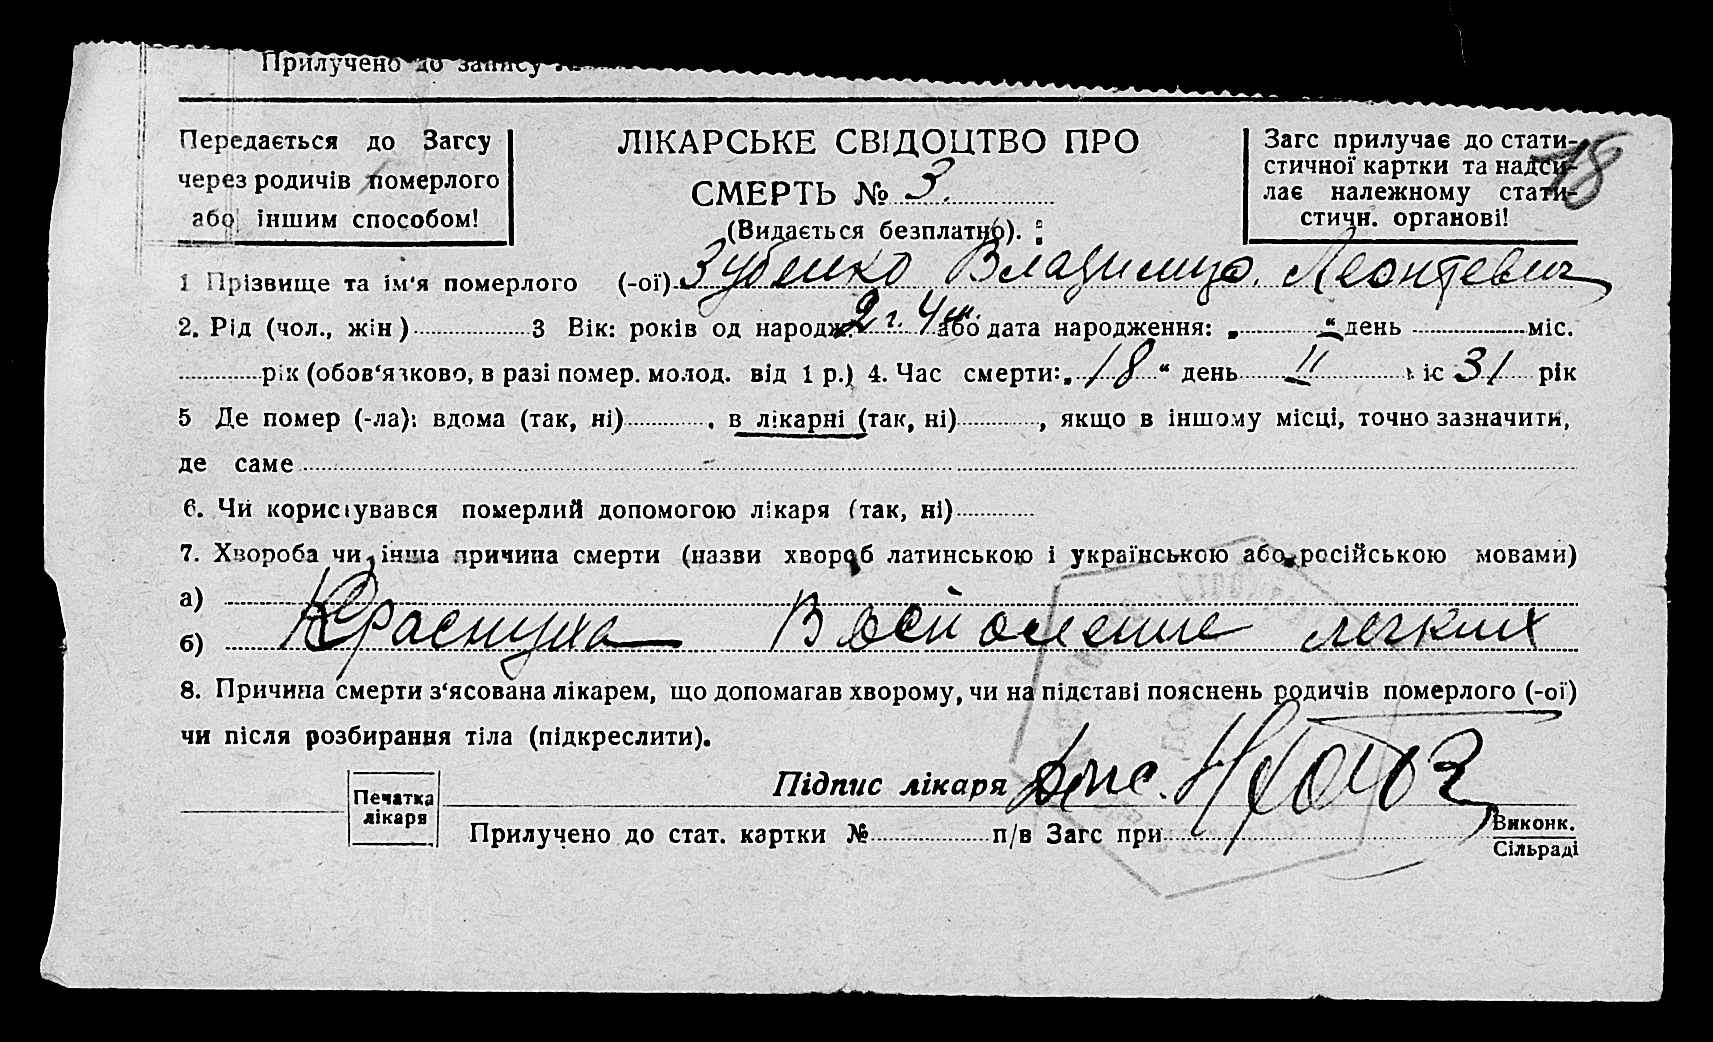 Прилучено до запису №
Передається до Загсу
через родичів померлого
або іншим способом!
ЛІКАРСЬКЕ СВІДОЦТВО ПРО
СМЕРТЬ № 3.
(Видається безплатно).
Загс прилучає до стати-
стичної картки та надси-
лає належному стати-
стичн. органові!
18
1 Прізвище та ім'я померлого (-ої) Зубенко Владимир. Леонтевич
2. Рід (чол., жін) 3 Вік: років од народж. 2 г. 4 м. або дата народження: „ “ день міс.
рік (обов'язково, в разі помер. молод. від 1 р.) 4. Час смерти: „18“ день II міс 31 рік
5 Де помер (-ла): вдома (так, ні) , в лікарні (так, ні) , якщо в іншому місці, точно зазначити,
де саме
6. Чи користувався померлий допомогою лікаря (так, ні)
7. Хвороба чи інша причина смерти (назви хвороб латинською і українською або російською мовами)
а)
б) Краснуха Восполение легких
8. Причина смерти з'ясована лікарем, що допомагав хворому, чи на підставі пояснень родичів померлого (-ої)
чи після розбирання тіла (підкреслити).
Підпис лікаря
Печатка
лікаря
Прилучено до стат. картки № п/в Загс при Виконк.
Сільраді